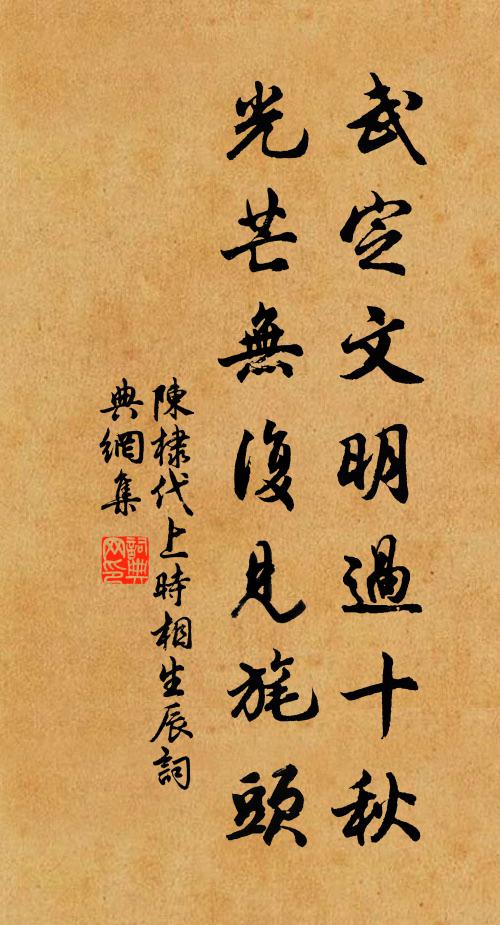 武定文明過十秋
光芒無復見旄頭
陳棣代上時相生辰詞
典網集
詞典網印